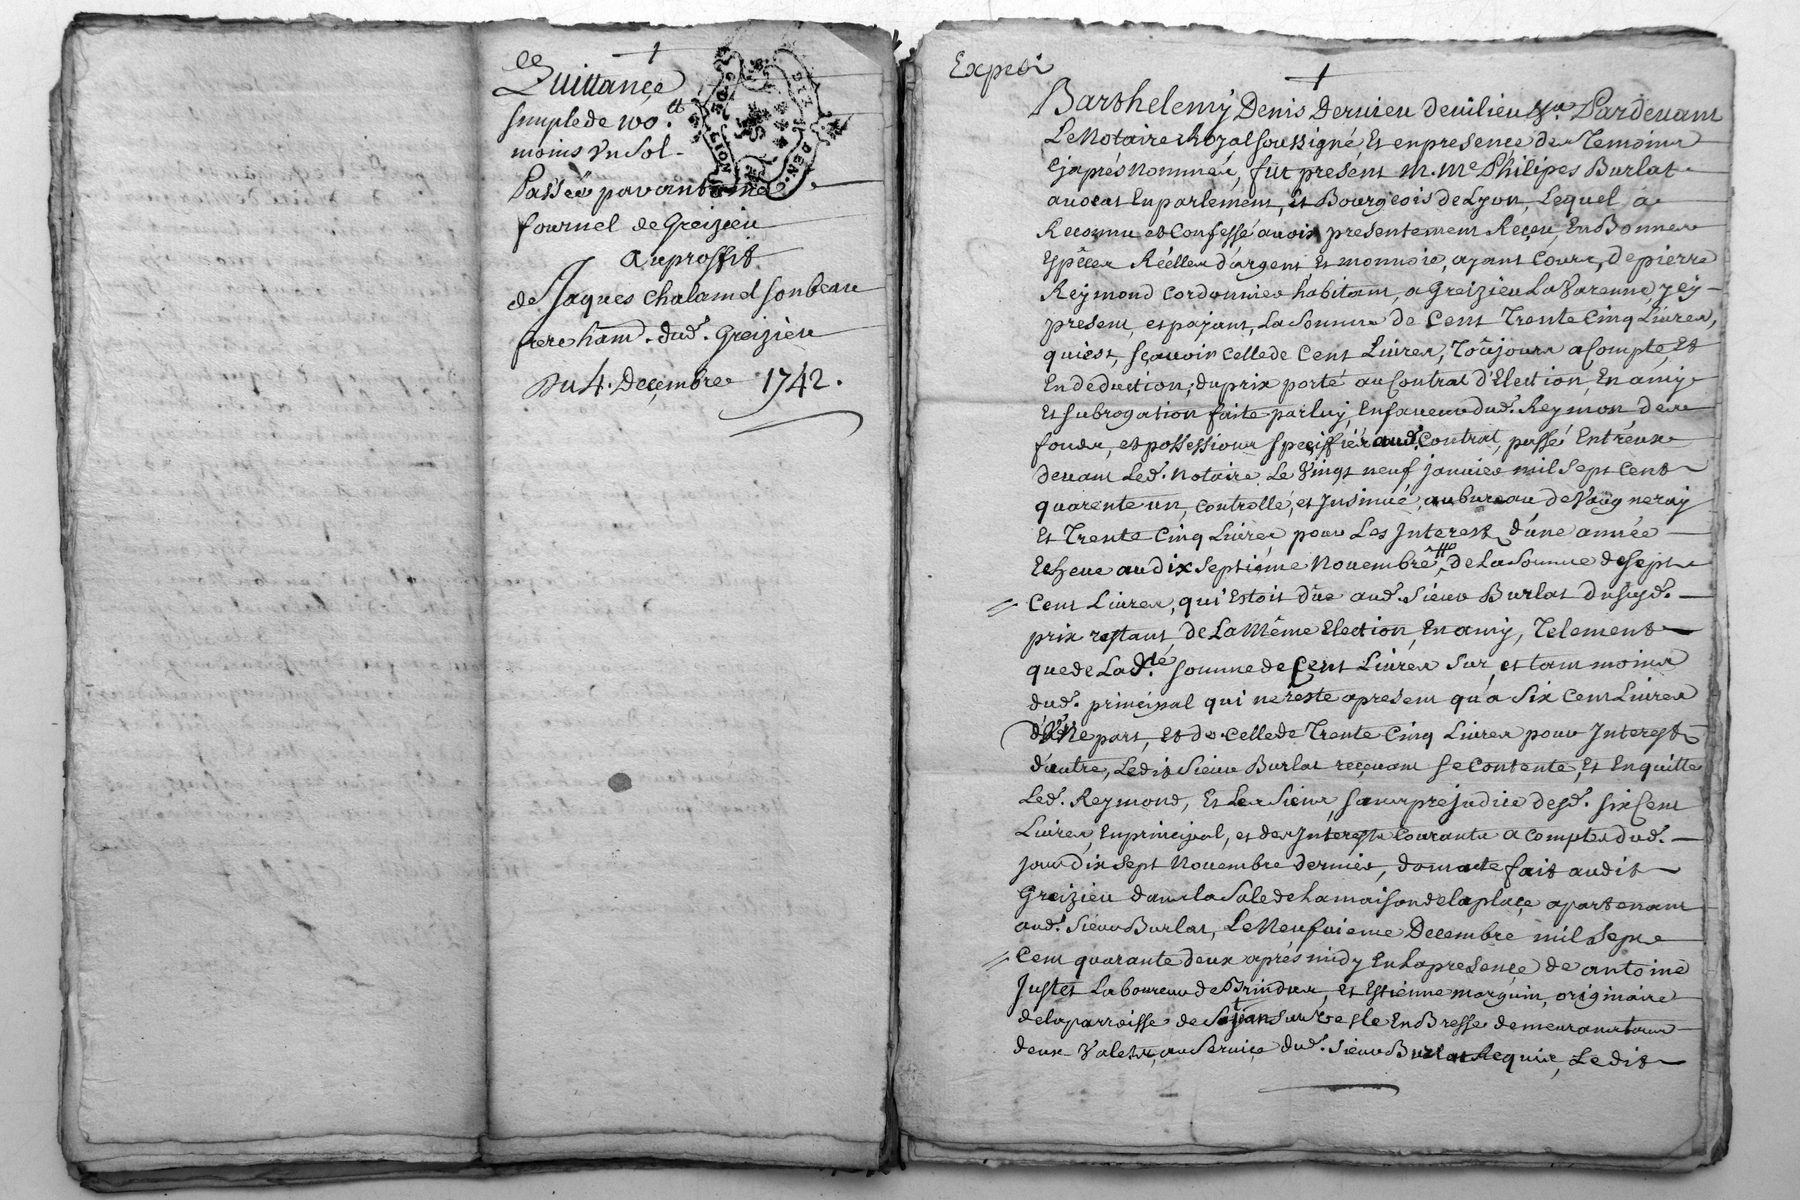 ce
Quittance
simple de 100.tt
moins Un sol -
Passée par antoine
fournel de Greizieu
Auproffit
de Jaques Chalamel son beau
frere habit. dud. Greizieu
Du 4. Decembre 1742.
GEN. DE LION
DIX DEN.
Expedi
Barthelemy Denis Dervieu devilieu Sr. Pardevant
Le Notaire Royal soussigné Et en presence des Temoins
Cy aprés Nommés, fut present M. Me Philipes Burlat
avocat En parlement, Et Bourgeois de Lyon, Lequel a
Reconnu et Confessé avoir presentement Reçeu, En Bonnes
Espêces Réelles d'argent Et monnoie, ayant Cours, de pierre
Reymond Cordonnier habitant, a Greizieu La Varenne, yçy
present, et payant, La somme de Cent Trente Cinq Livres,
qui est, sçavoir celle de Cent Livres, Toûjours a Compte, Et
En deduction, du prix porté au Contrat d'Election En amy
Et subrogation faite par luy, En faveur dud. Reymon des
fonds, et possessions specifiés aud. Contrat, passé Entréux
devant Led. Notaire Le Vingt neuf janvier mil sept Cent
quarente un, Controllé, et Insinué, au bureau de Vaugneray
Et Trente Cinq Livres pour Les Interest d'une année
Echeue au dix septiême Novembre, de La somme de sept
Cent Livres, qui Estoit dûe aud. Sieur Burlat du susd.
prix restant de La Même Election En amy, Telement
que de Lad.te somme de Cent Livres sur, et tant moins
dud. principal qui ne reste apresent qu'a Six Cent Livres
d'Une part, Et de Celle de Trente Cinq Livres pour Interest
d'autre, Ledit Sieur Burlat reçevant se Contente, Et En quitte
Led. Reymond, Et Les Siens, sans prejudice desd. six Cent
Livres, En principal, et des Interests Courants a Compter dud.
jour dix sept Novembre dernier, dont acte fait audit
Greizieu dans la Sale de La maison de la plaçe apartenant
aud. Sieur Burlat, Le Neufvieme Decembre mil Sept
Cent quarante deux aprés midy En La presençe de antoine
Justet Laboureur de Brindas, et Estienne marguin, originaire
de la parroisse de St jean sur Vesle En Bresse demeurant tous
deux Valets, au Serviçe dud. Sieur Burlat Requis, Ledit